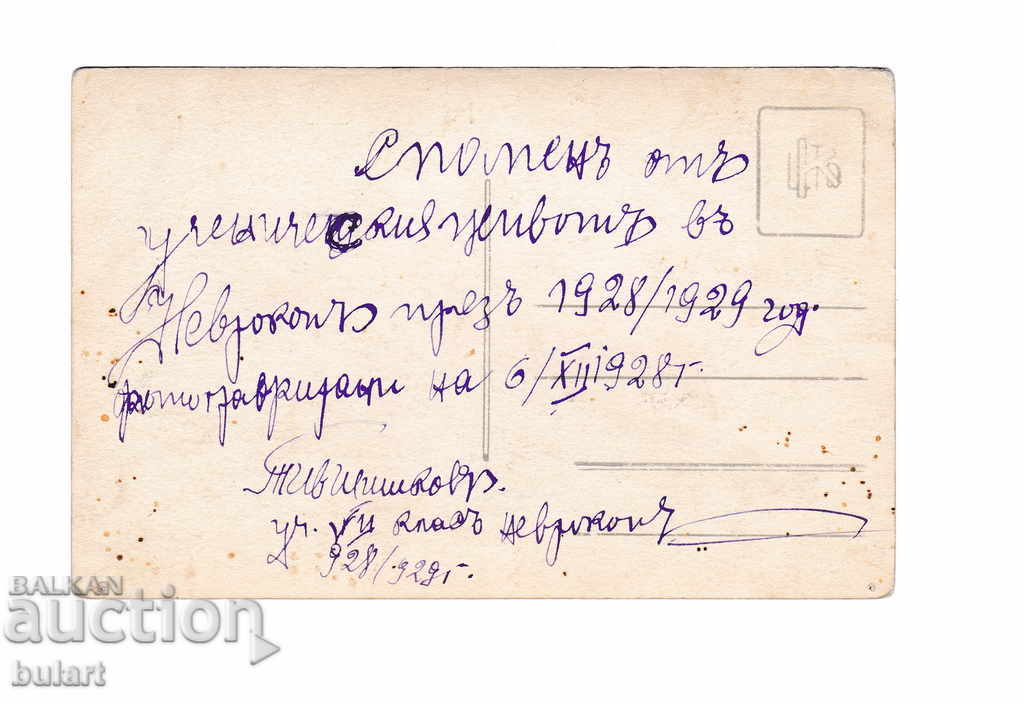 Споменъ отъ
ученическия животъ въ
Неврокопъ презъ 1928/1929 год.
фотографирани на 6/XII 1928 г.
Шишковъ.
уч. VII класъ Неврокопъ
928/929 г.
BALKAN
auction
bulart